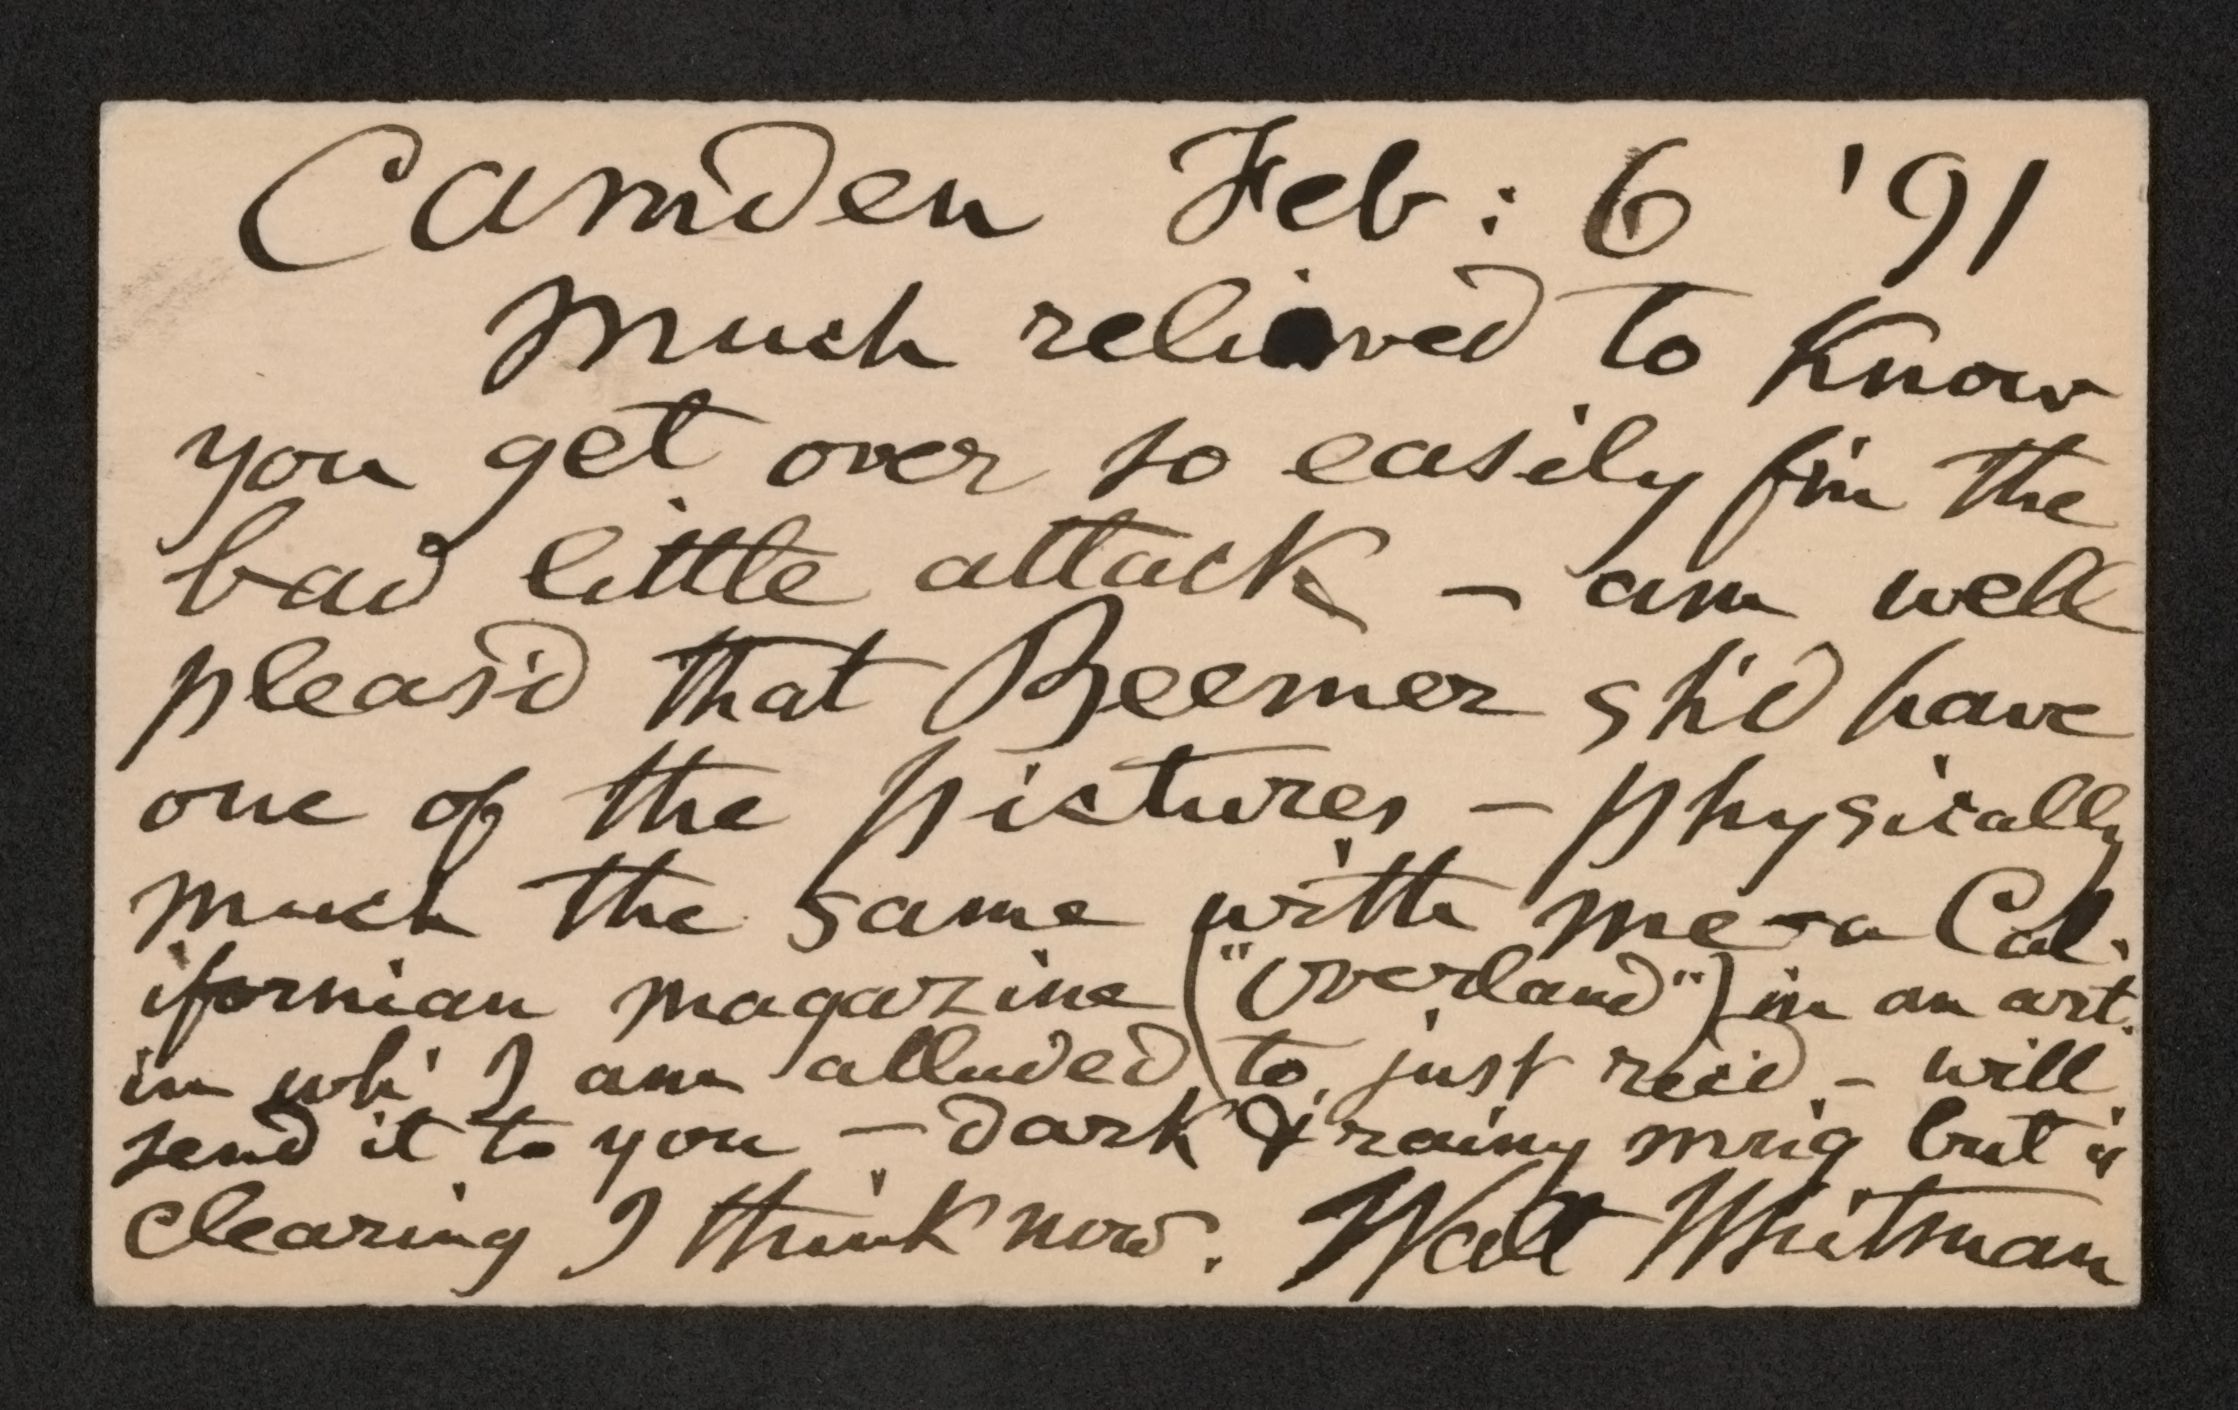 Camden Feb: 6 '91
Much relieved to know
you get over so easily f'm the
bad little attack – am well
pleas'd that Beemer sh'd have
one of the pictures – physically
much the same with me – a Cal-
ifornian magazine ("Overland") in an art.
in wh' I am alluded to, just rec'd – will
send it to you – dark & rainy mn'g but is
clearing I think now. Walt Whitman